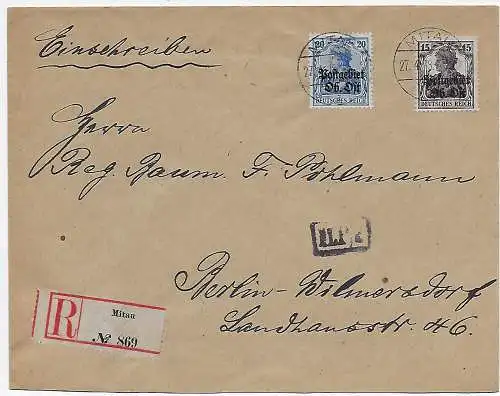 Einschreiben
20 20
Postgebiet
Ob. Ost
DEUTSCHES REICH
MITAU
27.
15 15
Postgebiet
Ob. Ost
DEUTSCHES REICH
MITAU
27.4
Herrn
Reg. Baum. F. Pohlmann
Berlin-Wilmersdorf
Landhausstr. 46.
R
Mitau
№ 869